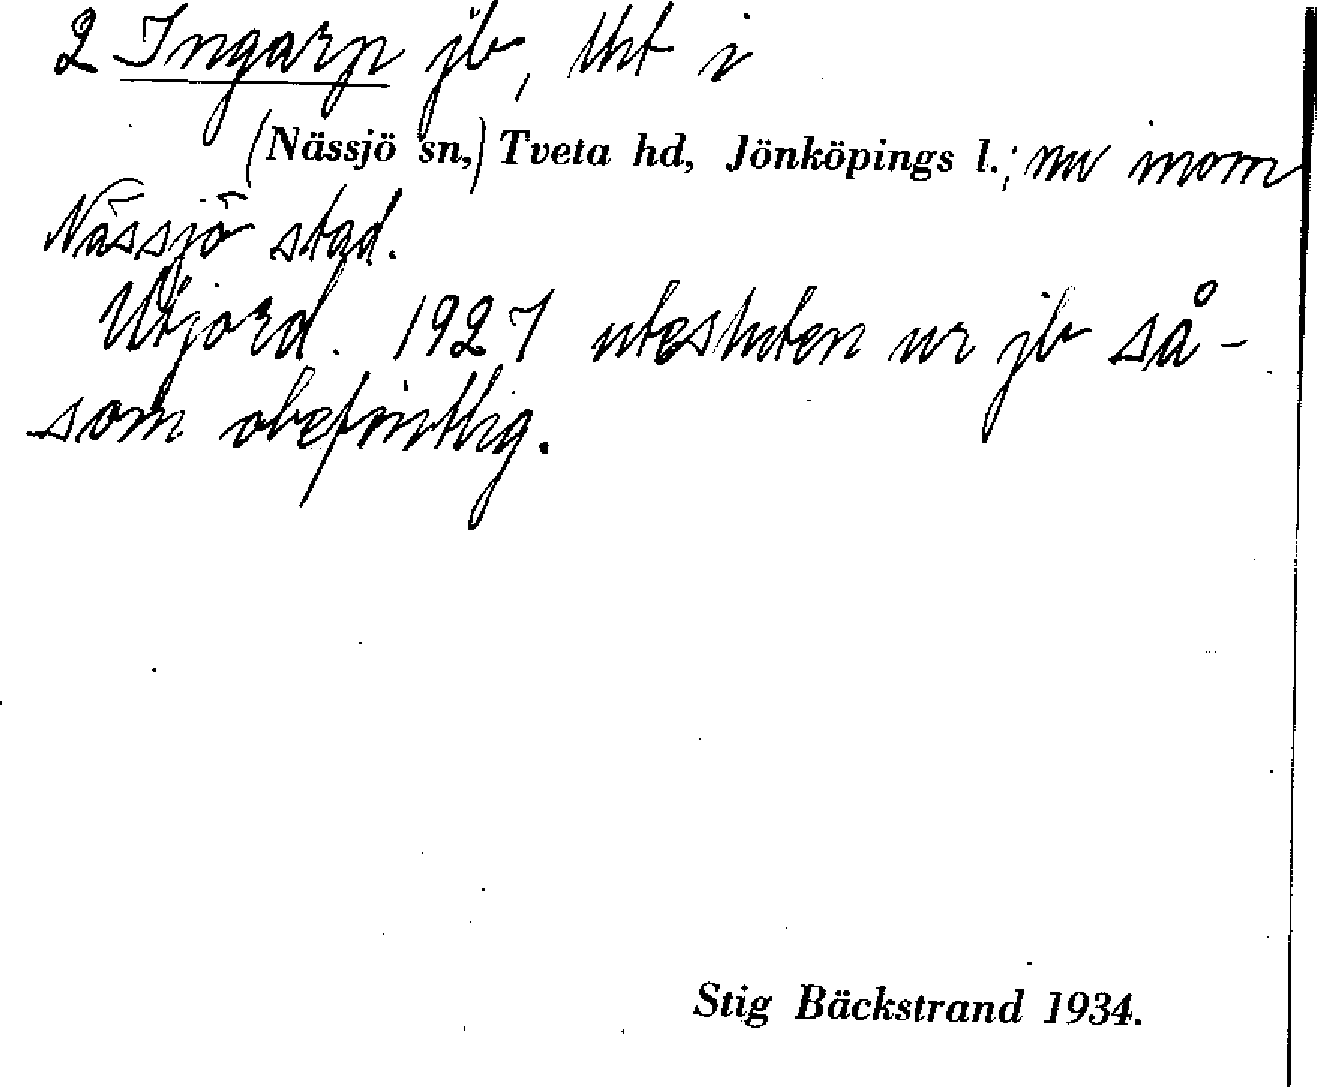 2 Ingarp jb, tht i
(Nässjö sn,) Tveta hd, Jönköpings l.; nu inom
Nässjö stad.
Utjord. 1927 utesluten ur jb så-
som obefintlig.
Stig Bäckstrand 1934.